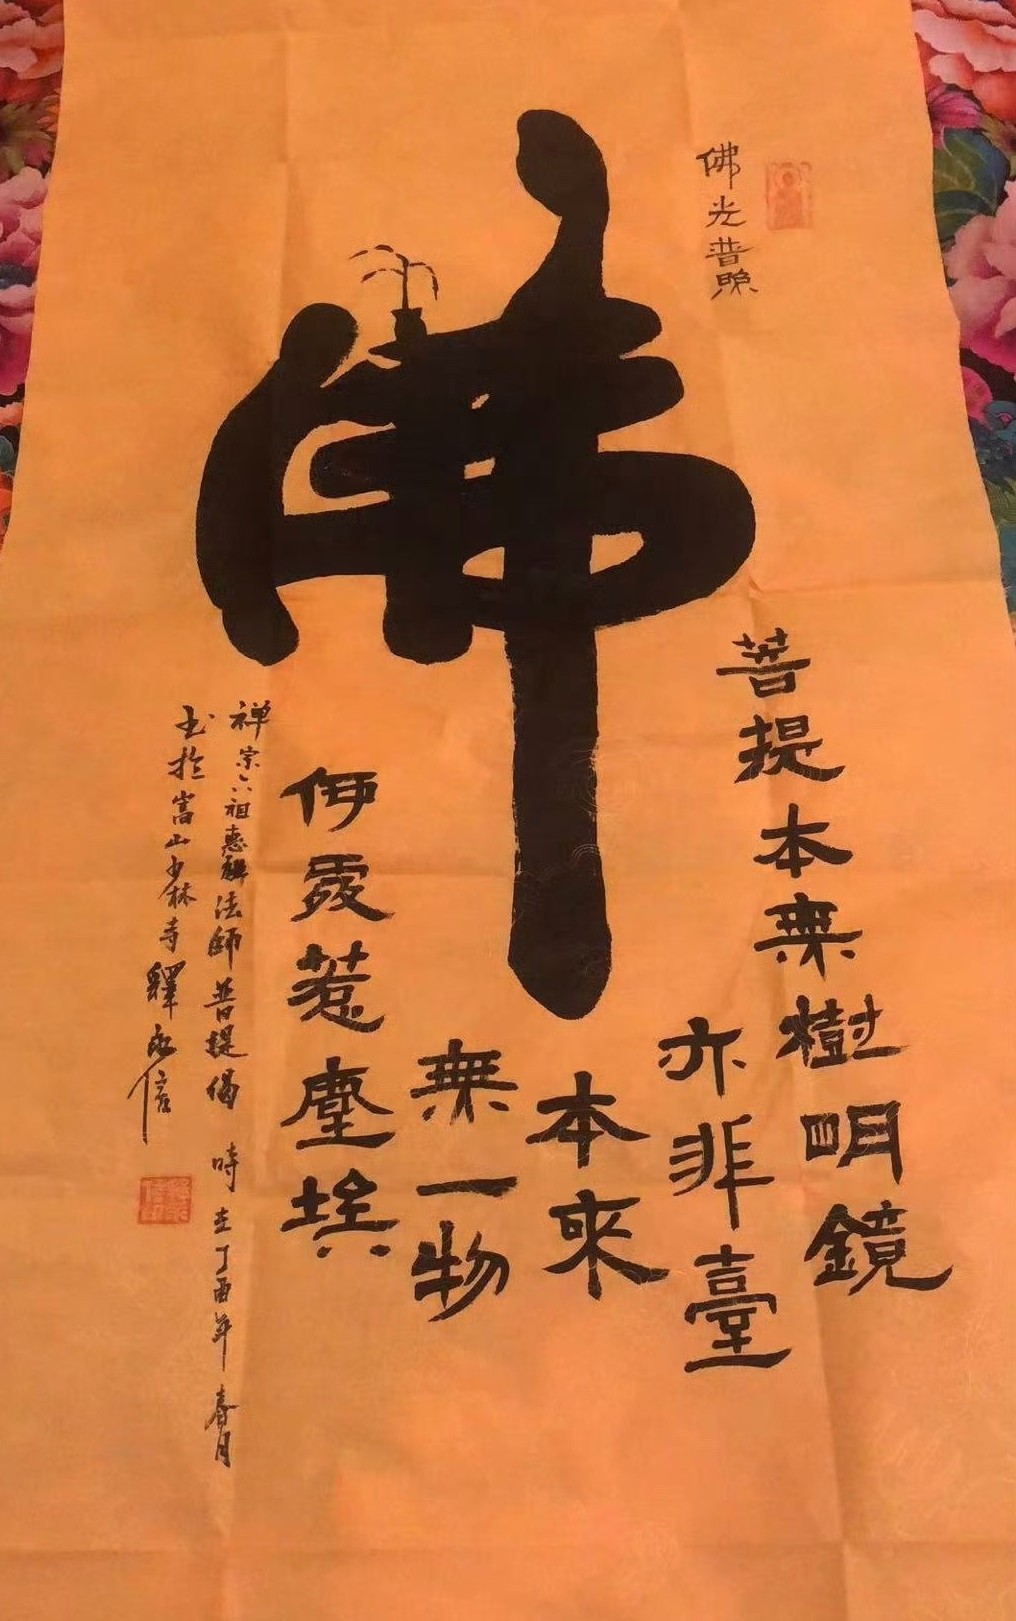 佛光普照
佛
菩提本無樹明鏡
亦非臺
本來
無一物
何處惹塵埃
禅宗六祖惠能法師菩提偈 時在丁酉年春月
书於嵩山少林寺釋永信